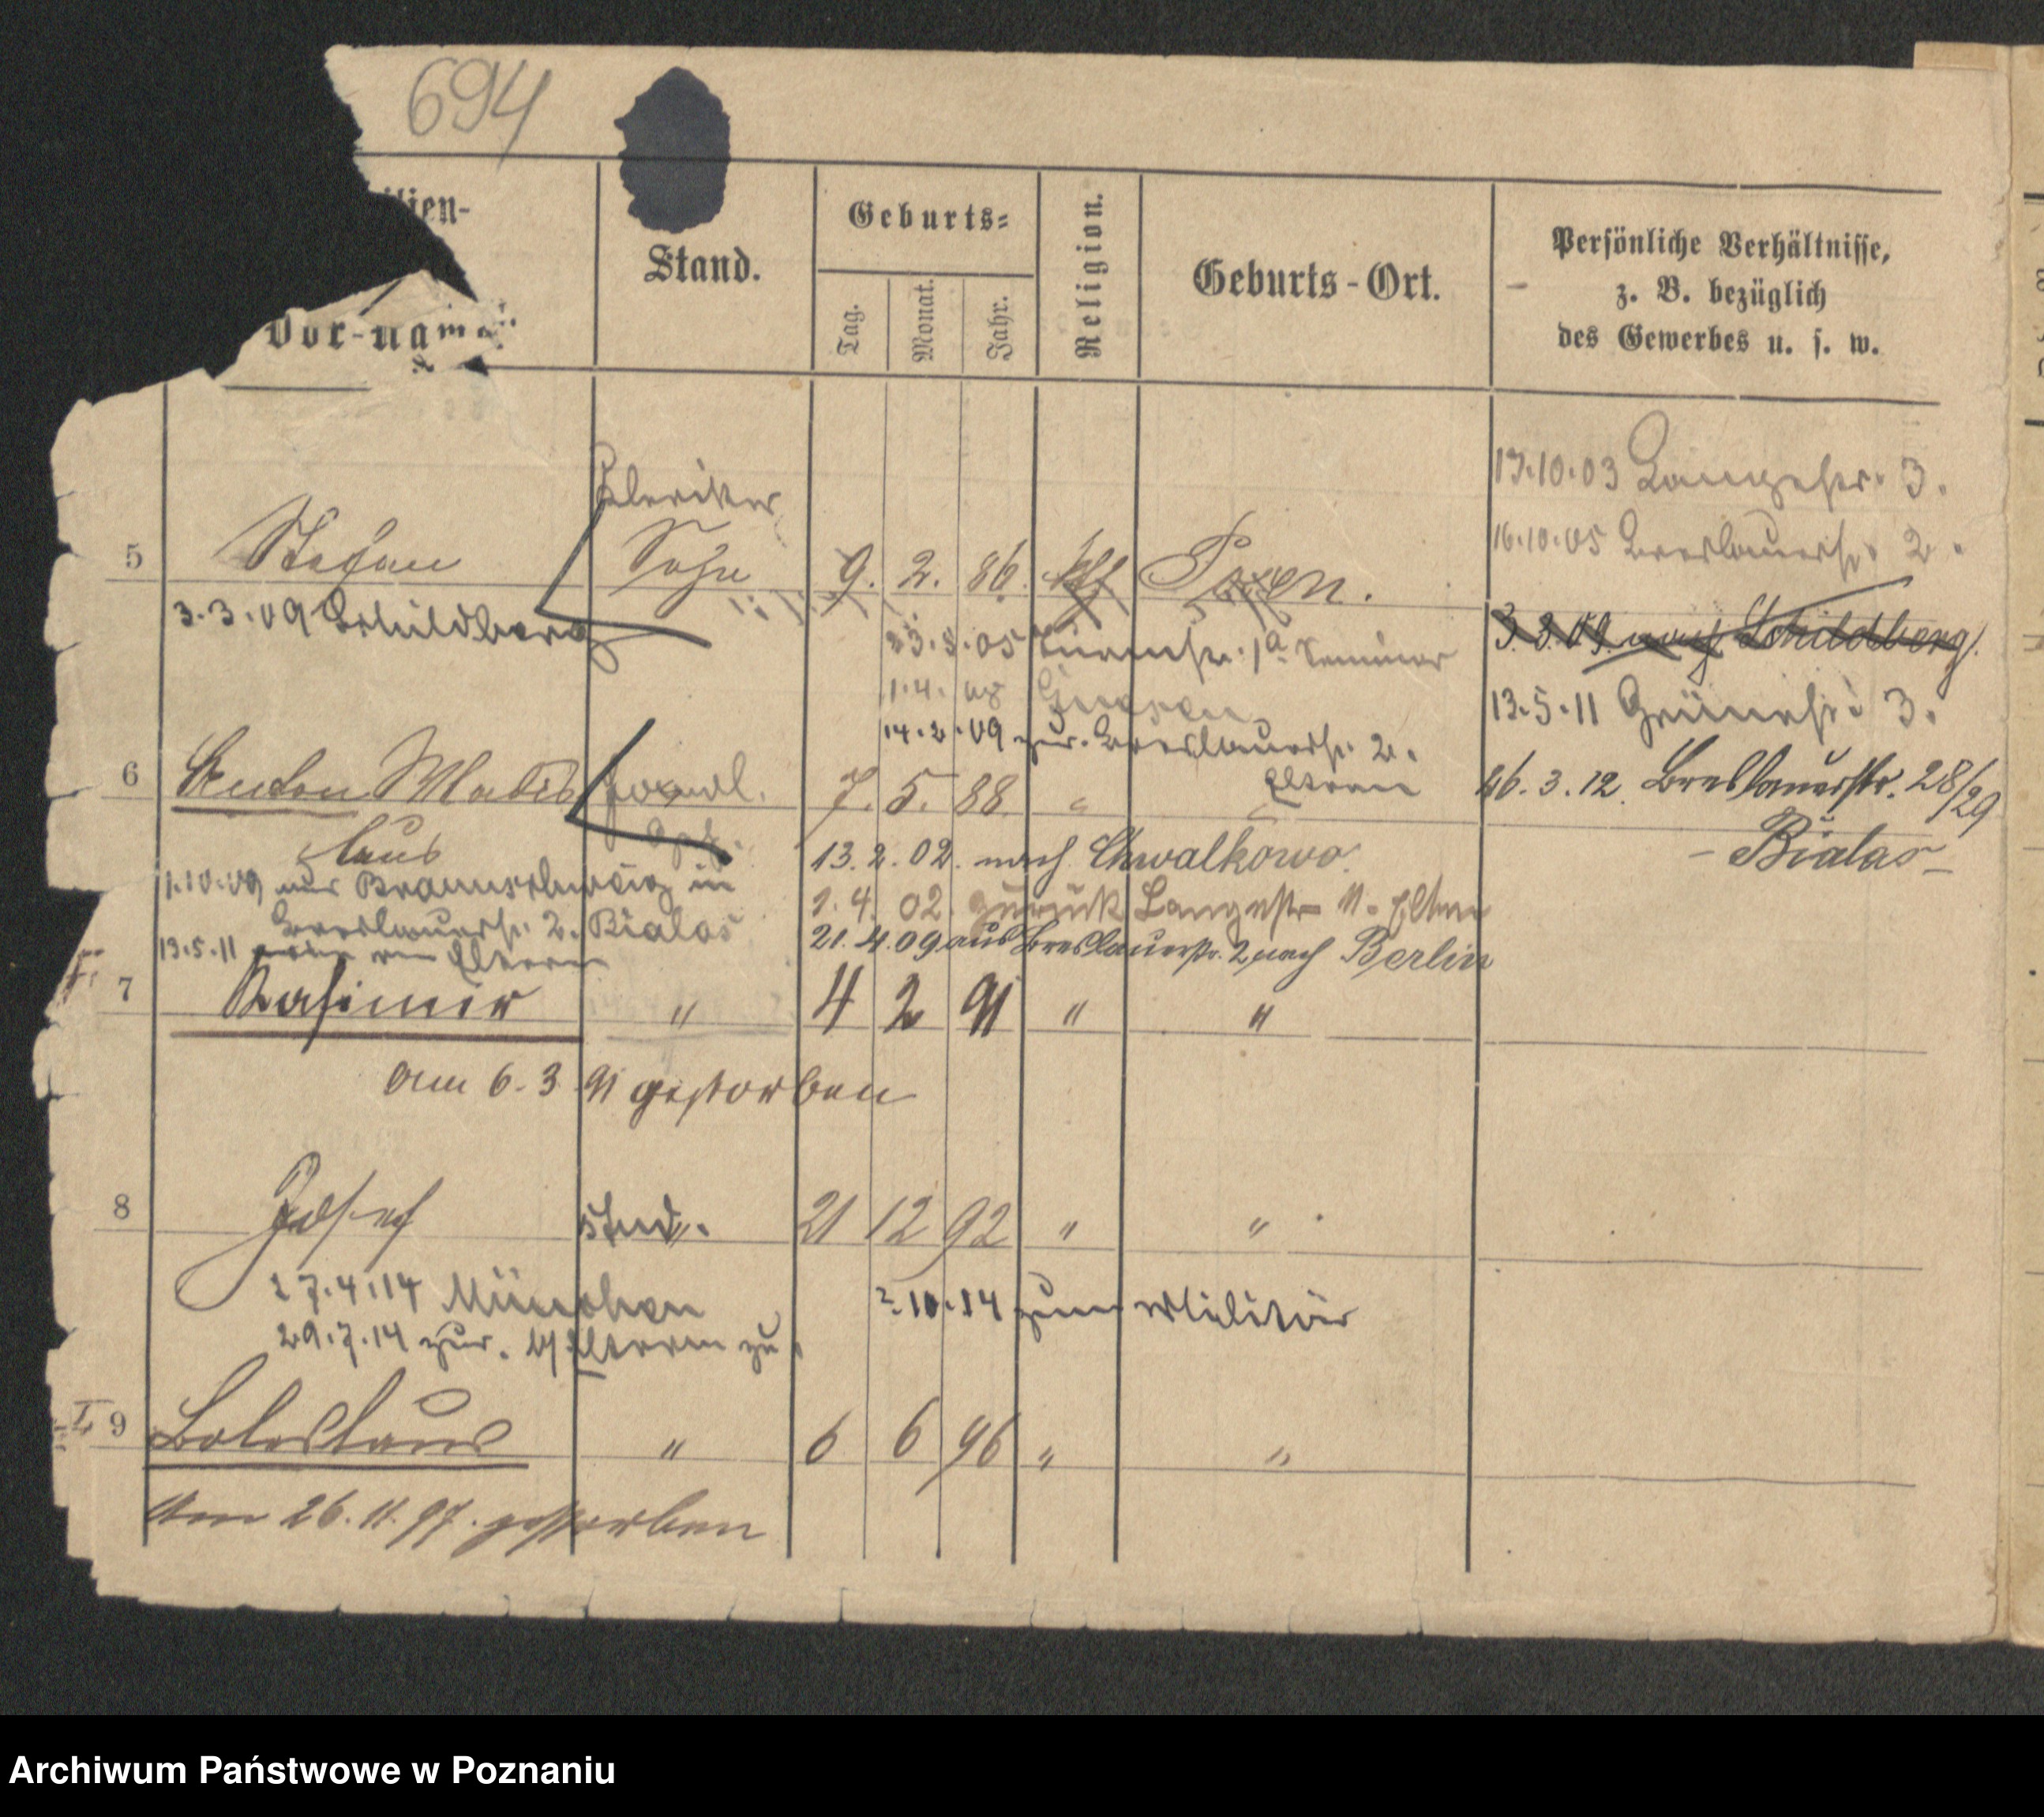 694
ilien-
Vor-name
Stand.
Geburts-
Tag.
Monat.
Jahr.
Religion.
Geburts-Ort.
Persönliche Verhältnisse,
z. B. bezüglich
des Gewerbes u. s. w.
13.10.03 Langestr. 3.
16.10.05 Breslauerstr. 2.
Kleriker
5 Stefan Sohn 9. 2. 86. kth Posen.
3.3.09 Schildberg
23.5.05 Turmstr. 1a Seminar
3.3.09. nach Schildberg.
1.4. 08 Gnesen
13.5.11 Grünestr. 3.
14.2.09 zur. Breslauerstr. 2.
Eltern
6 Anton Wladis 7. 5. 88 "
laus
16.3.12. Breslauerstr. 28/29
- Bialas -
13.2.02. nach Chwalkowo.
1.10.09 aus Braunschweig in
Breslauerstr. 2. Bialas
1.4.02. zurück Langestr 11. Eltern
21.4.09. aus Breslauerstr. 2 nach Berlin
13.5.11 Eltern
7 Kasimir " 4 2 91 " "
am 6.3 91 gestorben
8 Josef stud. " 21 12 92 " "
27.4.14 München
2.10.14 zum Militär
29.7.14 zur. Eltern zu
9 Boleslaus " 6 6 96 " "
Am 26.11.97. gestorben
Archiwum Państwowe w Poznaniu